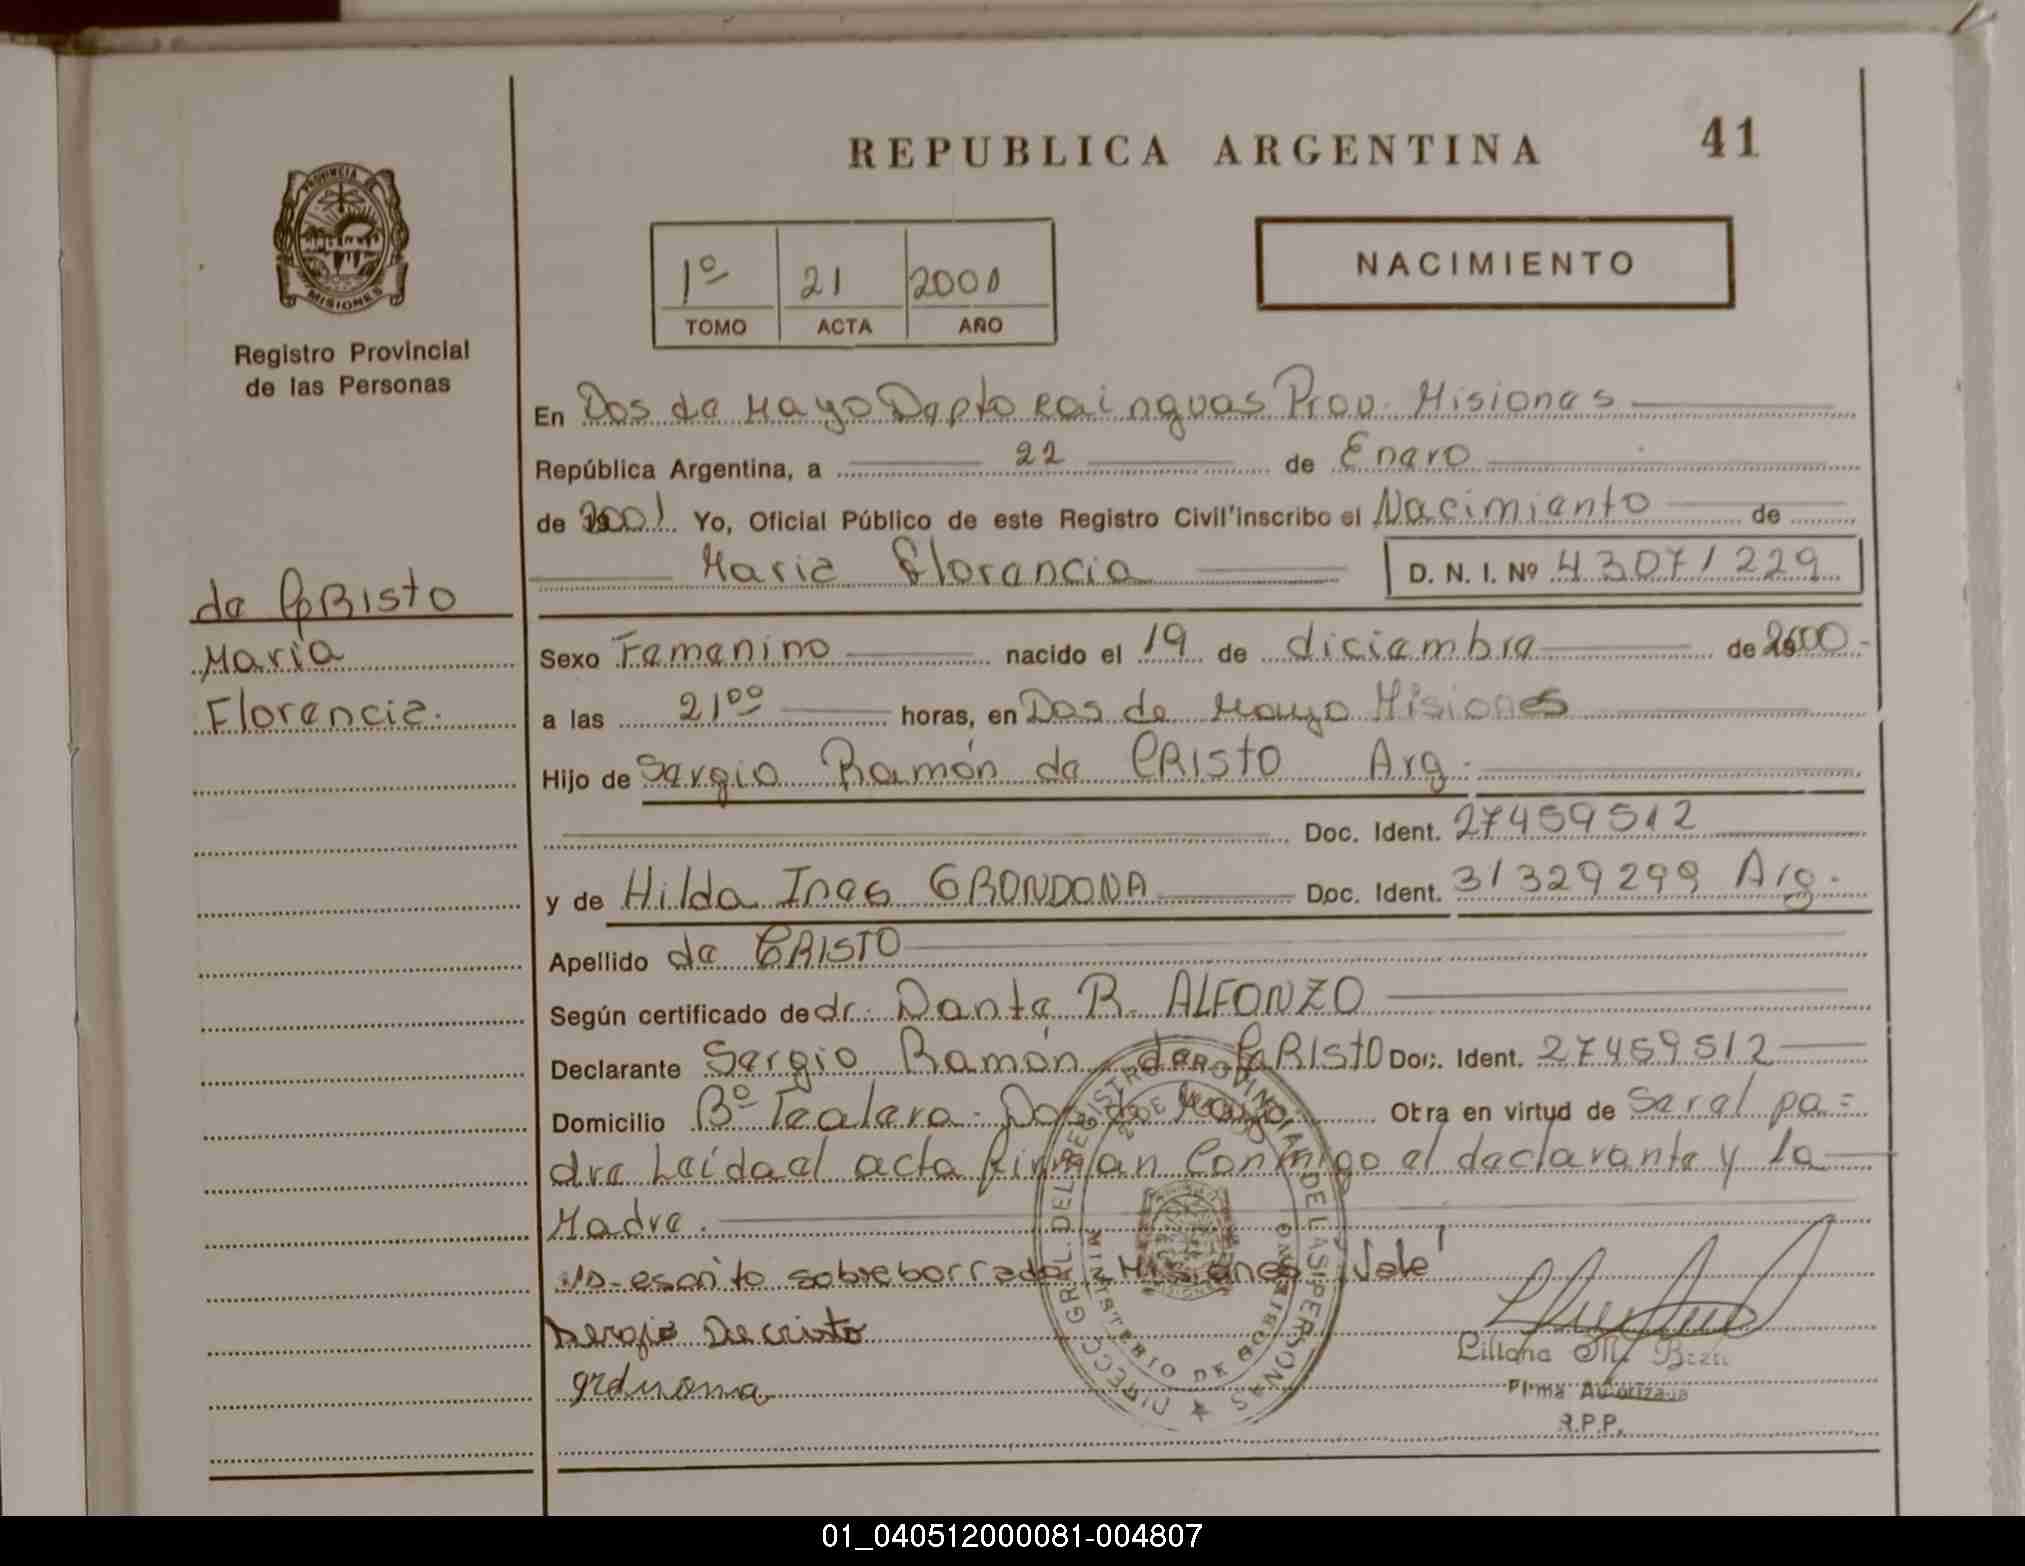 REPUBLICA ARGENTINA
41
PROVINCIA DE
MISIONES
Registro Provincial
de las Personas
1º 21 2001
TOMO ACTA AÑO
NACIMIENTO
En Dos de Mayo Depto Cainguas Prov. Misiones
República Argentina, a 22 de Enero
de 2001 Yo, Oficial Público de este Registro Civil inscribo el Nacimiento de
Maria Florencia D. N. I. Nº 43071229
de CRISTO
Maria
Florencia.
Sexo Femenino nacido el 19 de diciembre de 2000.-
a las 21ºº horas, en Dos de Mayo Misiones
Hijo de Sergio Ramón de CRISTO Arg.
Doc. Ident. 27459512
y de Hilda Ines GRONDONA Doc. Ident. 31329299 Arg.
Apellido de CRISTO
Según certificado de dr. Dante R. ALFONZO
Declarante Sergio Ramón de CRISTO Doc. Ident. 27459512
Domicilio Bº Tealera. Dos de Mayo Otra en virtud de Ser el pa=
dre Leída el acta firman Conmigo el declarante y la
Madre.
escrito sobreborrado Misiones Vale
Sergio De cristo
DIRECC. GRAL. DEL REGISTRO PROVINCIAL DE LAS PERSONAS
MINISTERIO DE GOBIERNO
2 DE MAYO
MISIONES
Liliana M.
Firma Autorizada
R.P.P.
01_040512000081-004807